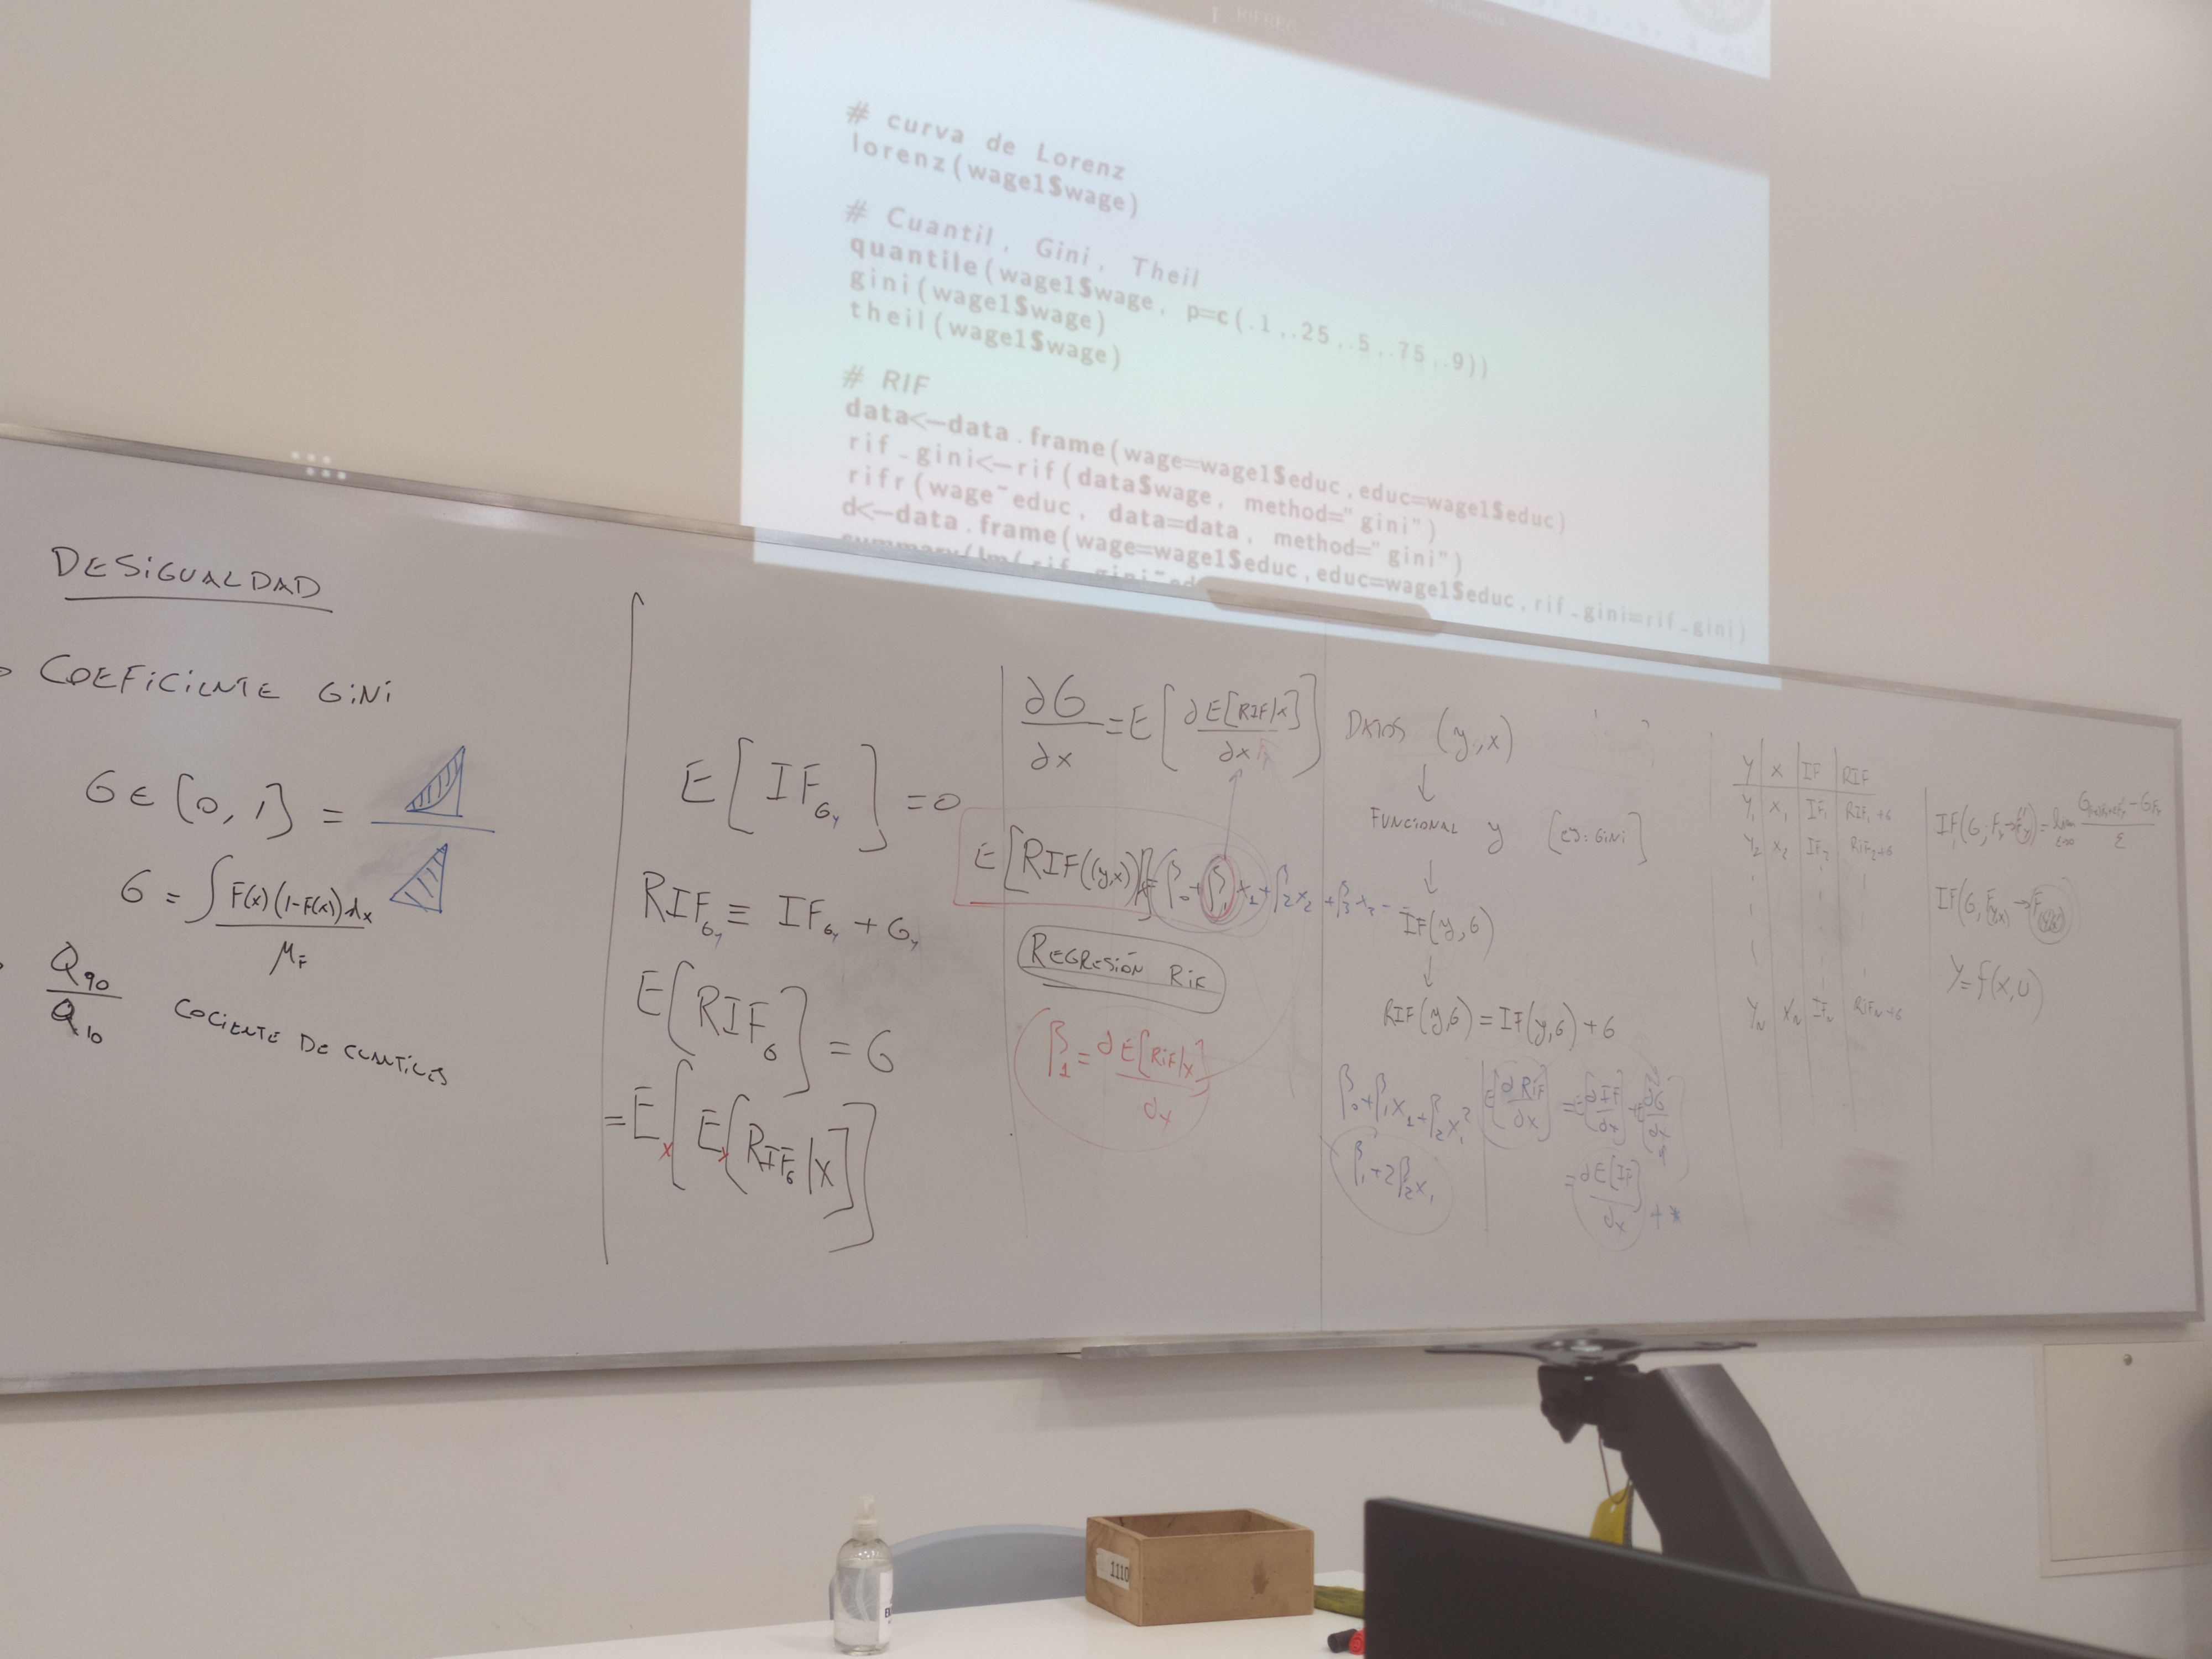 RIFREG
# curva de Lorenz
lorenz(wage1$wage)
# Cuantil, Gini, Theil
quantile(wage1$wage, p=c(.1,.25,.5,.75,.9))
gini(wage1$wage)
theil(wage1$wage)
# RIF
data<-data.frame(wage=wage1$educ,educ=wage1$educ)
rif_gini<-rif(data$wage, method="gini")
rifr(wage~educ, data=data, method="gini")
d<-data.frame(wage=wage1$educ,educ=wage1$educ,rif_gini=rif_gini)
summary(lm(rif_gini~ed
DESIGUALDAD
COEFICIENTE GINI
G ∈ [0,1] =
G = ∫ F(x)(1-F(x))dx / μ_F
Q_90 / Q_10 COCIENTE DE CUANTILES
E[IF_{G_Y}] = 0
RIF_{G_Y} ≡ IF_{G_Y} + G_Y
E[RIF_G] = G
= E_x[E_Y[RIF_G|X]]
∂G/∂x = E[∂E[RIF|x]/∂x]
E[RIF((y,x))] = β_0 + β_1 x_1 + β_2 x_2 + β_3 x_3
REGRESIÓN RIF
β_1 = ∂E[RIF|x]/∂x
DATOS (y,x)
↓
FUNCIONAL y [ej: GINI]
↓
IF(y,G)
↓
RIF(y,G) = IF(y,G) + G
β_0 + β_1 x_1 + β_2 x_1²
β_1 + 2β_2 x_1
E[∂RIF/∂x] = E[∂IF/∂x] + E[∂G/∂x]
= ∂E[IF]/∂x + *
Y X IF RIF
Y_1 X_1 IF_1 RIF_1+G
Y_2 X_2 IF_2 RIF_2+G
Y_N X_N IF_N RIF_N+G
Y = f(X,U)